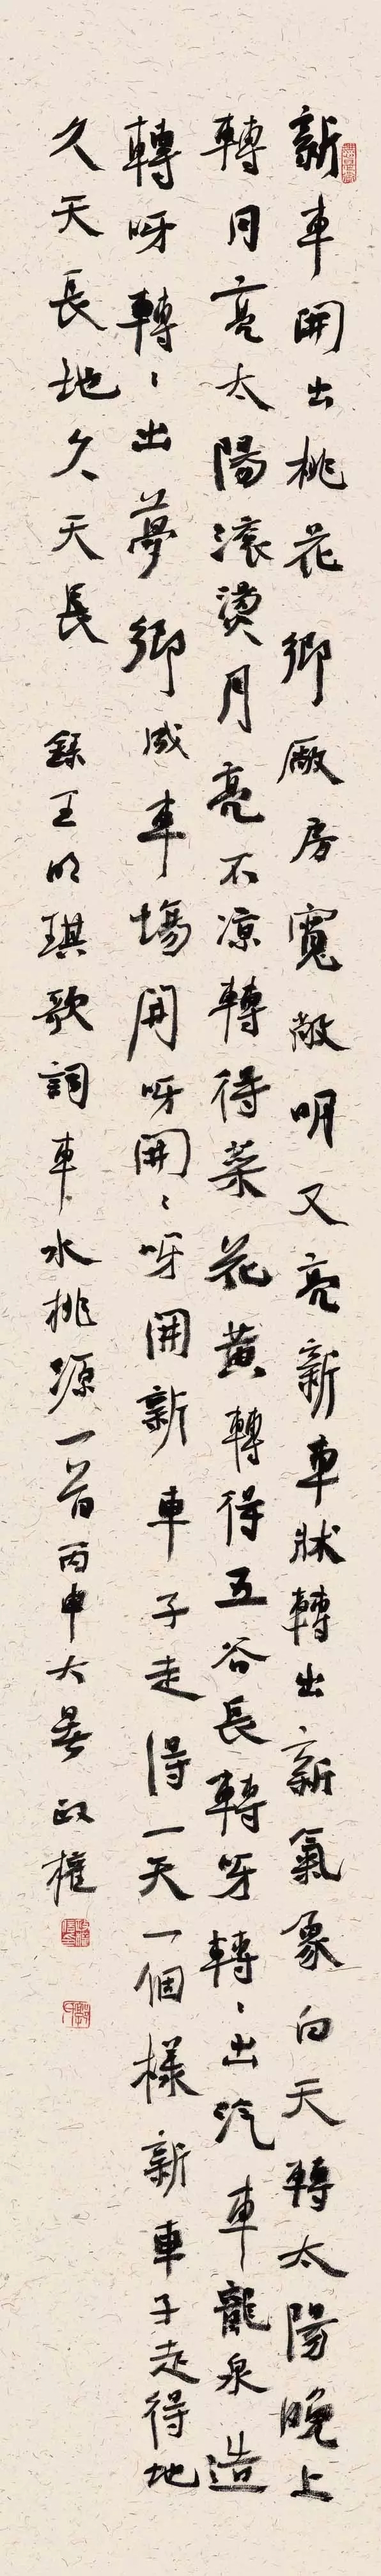 新車開出桃花鄉廠房寬敞明又亮新車床轉出新氣象白天轉太陽晚上
轉月亮太陽滾燙月亮不凉轉得菜花黃轉得五谷長轉呀轉、出汽車龍泉造
轉呀轉、出夢鄉成車塲開呀開、呀開新車子走得一天一個樣新車子走得地
久天長地久天長
錄王明琪歌詞車水桃源一首丙申大暑政權